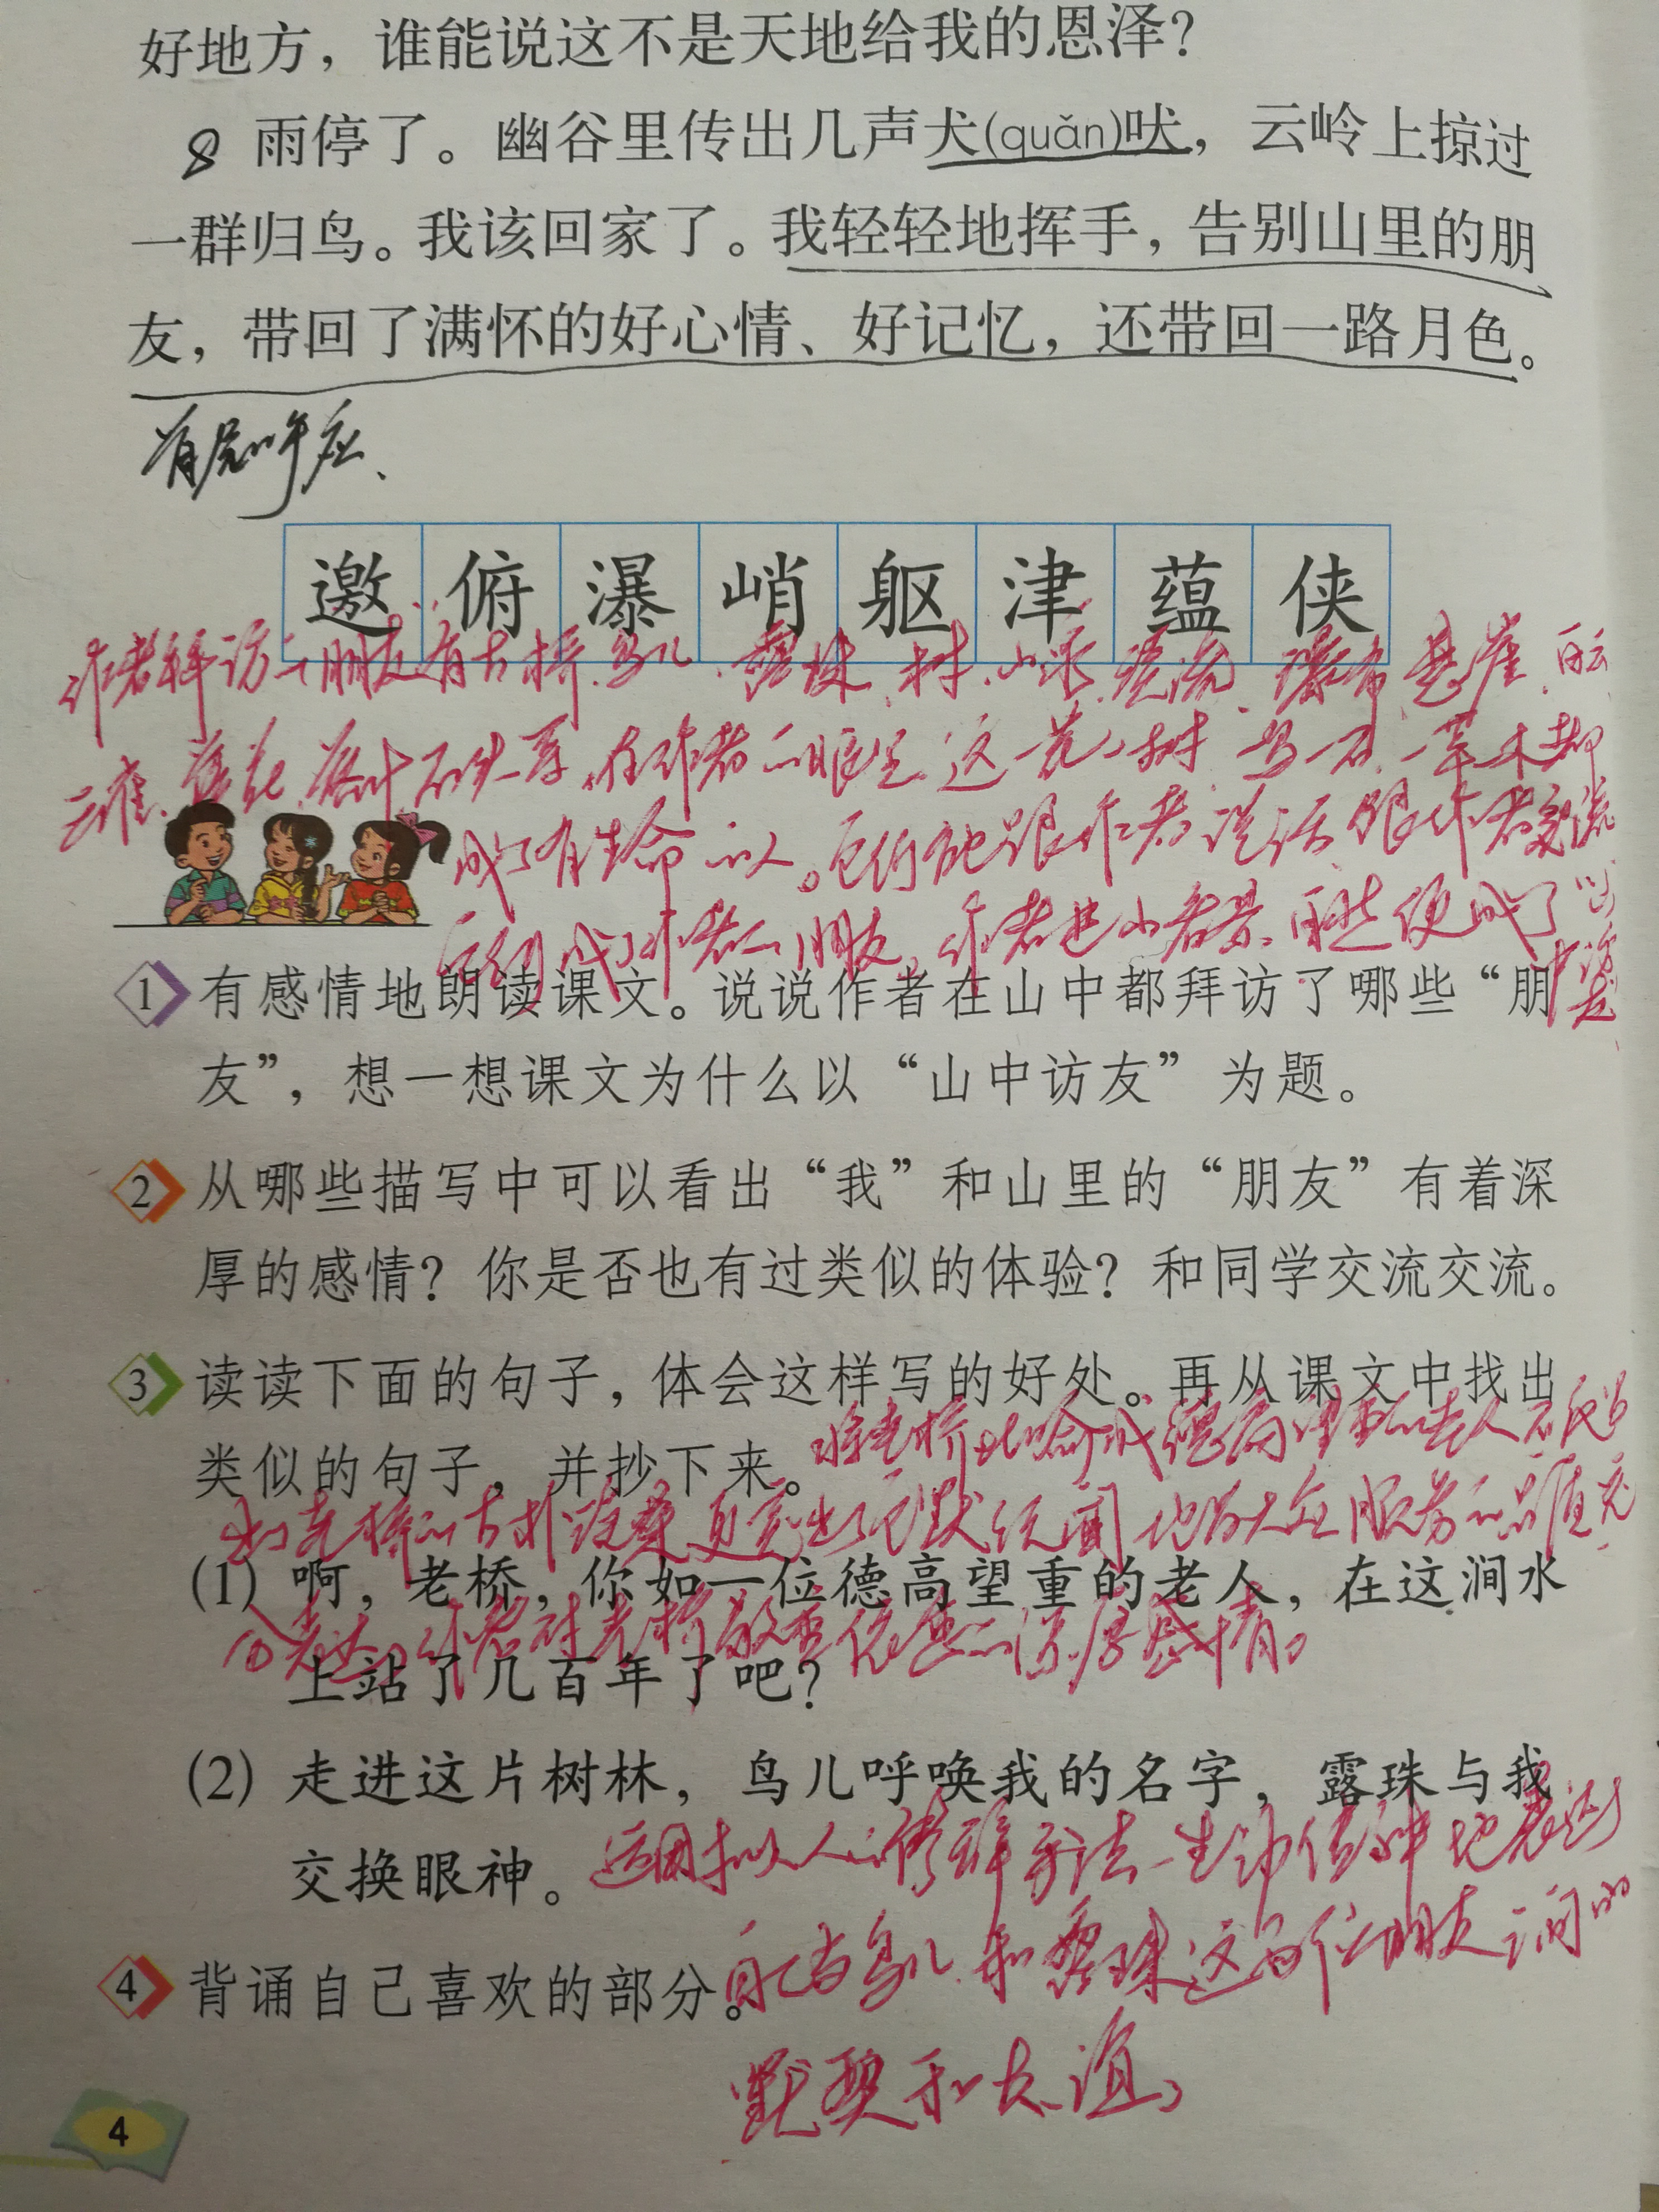 好地方，谁能说这不是天地给我的恩泽？
8 雨停了。幽谷里传出几声犬(quǎn)吠，云岭上掠过
一群归鸟。我该回家了。我轻轻地挥手，告别山里的朋
友，带回了满怀的好心情、好记忆，还带回一路月色。
首尾呼应、
邀 俯 瀑 峭 躯 津 蕴 侠
作者拜访的朋友有古桥、鸟儿、露珠、树、山泉、溪流、瀑布、悬崖、白云
云雀、落花、落叶、石头等。在作者的眼里，这一花一树一鸟一石一草一木都
成了有生命的人。它们能跟作者说话，跟作者交流
它们成了作者的朋友。作者进山看景
1 有感情地朗读课文。说说作者在山中都拜访了哪些“朋
友”，想一想课文为什么以“山中访友”为题。
2 从哪些描写中可以看出“我”和山里的“朋友”有着深
厚的感情？你是否也有过类似的体验？和同学交流交流。
3 读读下面的句子，体会这样写的好处。再从课文中找出
类似的句子，并抄下来。
将老桥比喻成德高望重的老人
老桥的古朴沧桑，更突出了它默默无闻地为大众服务的品质，充
分表达了作者对老桥敬重的深厚感情。
(1) 啊，老桥，你如一位德高望重的老人，在这涧水
上站了几百年了吧？
(2) 走进这片树林，鸟儿呼唤我的名字，露珠与我
交换眼神。
运用拟人的修辞手法，生动传神地表达
自己与鸟儿和露珠这两位朋友之间的
默契和友谊。
4 背诵自己喜欢的部分。
4